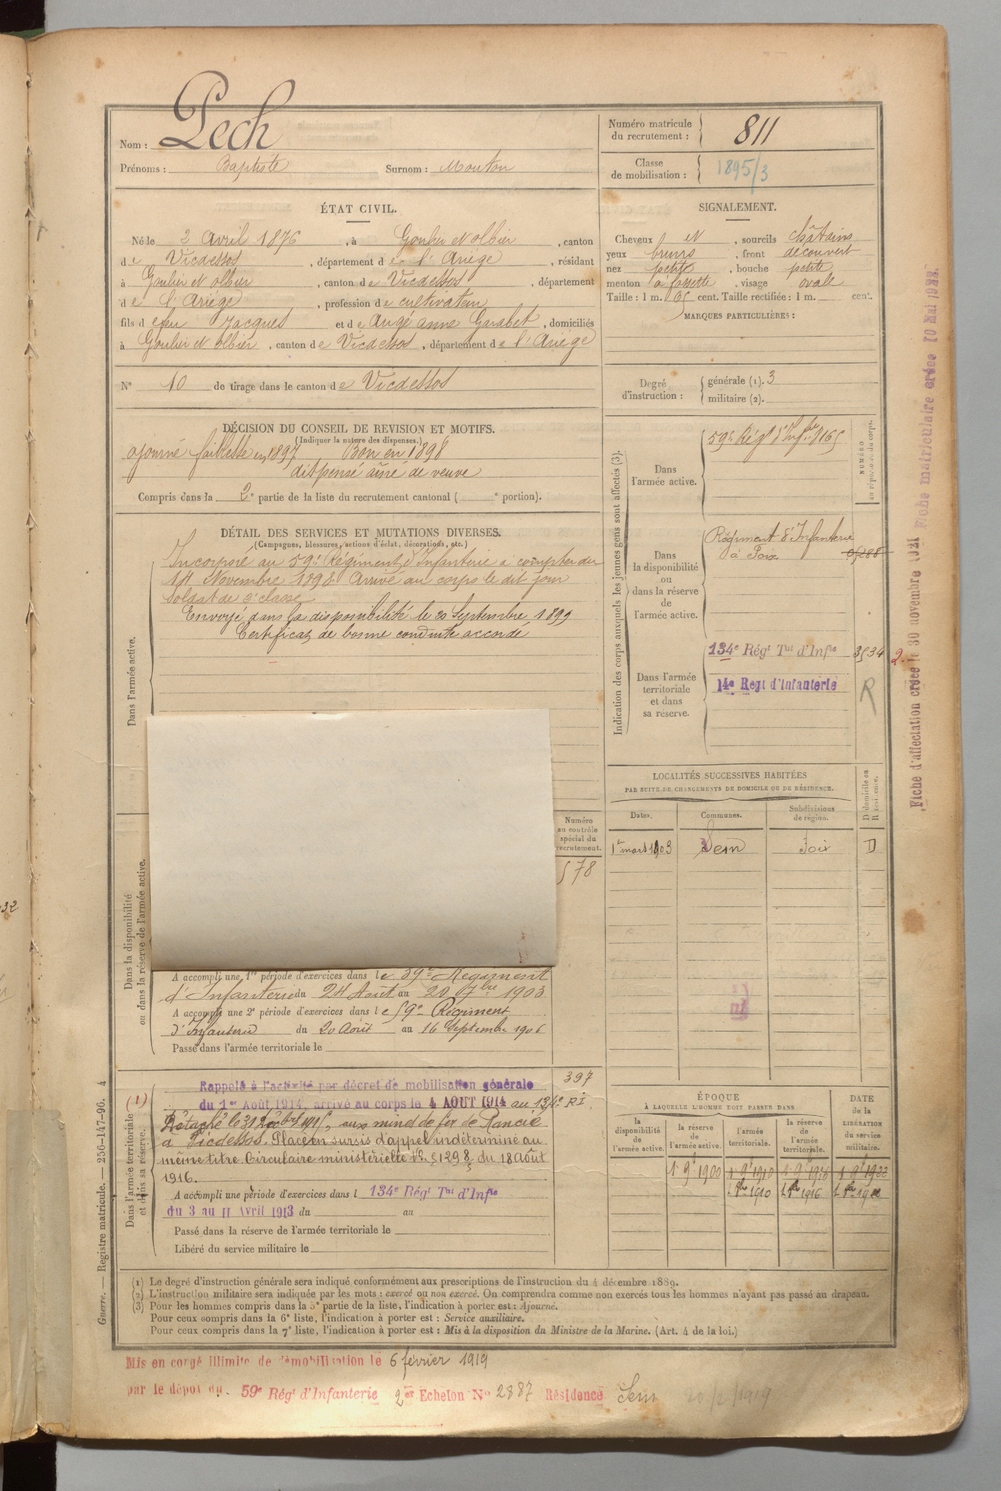 Nom : Pech
Prénoms : Baptiste Surnom : Mouton
Numéro matricule du recrutement : 811
Classe de mobilisation : 1895/3
ÉTAT CIVIL.
Né le 2 Avril 1876, à Goulier et olbier, canton
de Vicdessos, département de l'Ariège, résidant
à Goulier et olbier, canton de Vicdessos, département
de l'Ariège, profession de cultivateur
fils de feu Jacques et de Augé anne Garabet, domiciliés
à Goulier et olbier, canton de Vicdessos, département de l'Ariège
N° 10 de tirage dans le canton de Vicdessos
SIGNALEMENT.
Cheveux et, sourcils châtains
yeux, front découvert
nez petit, bouche petite
menton à fossette, visage ovale
Taille : 1 m. 65 cent. Taille rectifiée : 1 m. cent.
MARQUES PARTICULIÈRES :
Degré d'instruction : générale (1). 3
militaire (2).
DÉCISION DU CONSEIL DE REVISION ET MOTIFS.
(Indiquer la nature des dispenses.)
ajourné faiblesse en 1897 Bon en 1898
dispensé aîné de veuve
Compris dans la 2e partie de la liste du recrutement cantonal ( e portion).
DÉTAIL DES SERVICES ET MUTATIONS DIVERSES.
(Campagnes, blessures, actions d'éclat, décorations, etc.)
Dans l'armée active.
Incorporé au 59e Régiment d'Infanterie à compter du
14 Novembre 1898 Arrivé au corps le dit jour
soldat de 2e classe
Envoyé dans la disponibilité le 20 Septembre 1899
Certificat de bonne conduite accordé
Indication des corps auxquels les jeunes gens sont affectés (3).
NUMÉRO au répertoire du corps.
Dans l'armée active.
59e Régt d'Infrie
Dans la disponibilité ou dans la réserve de l'armée active.
Régiment d'Infanterie
à Foix
Dans l'armée territoriale et dans sa réserve.
134e Régt Tal d'Infie 3534
14e Regt d'Infanterie R
2.
Fiche d'affectation créée le 30 novembre 1921 Fiche matriculaire créée 10 Mai 1922
LOCALITÉS SUCCESSIVES HABITÉES
PAR SUITE DE CHANGEMENTS DE DOMICILE OU DE RÉSIDENCE.
Dates. Communes. Subdivisions de région. D domicile ou R résidence.
1er mars 1903 Sem Foix D
Dans la disponibilité ou dans la réserve de l'armée active.
Numéro au contrôle spécial du recrutement.
578
A accompli une 1re période d'exercices dans le 59e Régiment
d'Infanterie du 24 Août au 20 7bre 1903
A accompli une 2e période d'exercices dans le 59e Régiment
d'Infanterie du 20 Août au 16 Septembre 1906
Passé dans l'armée territoriale le
Dans l'armée territoriale et dans sa réserve.
(1)
397
Rappelé à l'activité par décret de mobilisation générale
du 1er Août 1914, arrivé au corps le 4 AOUT 1914 au 134e RI
Détaché le 31, aux mines de fer de Rancié
à Vicdessos. Placé en sursis d'appel indéterminé au
même titre. Circulaire ministérielle du 18 Août
1916.
A accompli une période d'exercices dans l 134e Régt Tal d'Infie
du 3 au 11 Avril 1913 du au
Passé dans la réserve de l'armée territoriale le
Libéré du service militaire le
ÉPOQUE
À LAQUELLE L'HOMME DOIT PASSER DANS
DATE de la LIBÉRATION du service militaire.
la disponibilité de l'armée active. la réserve de l'armée active. l'armée territoriale. la réserve de l'armée territoriale.
1 9e 1900
1 8bre 1910 1 8bre 1916
Guerre. — Registre matricule. — 256-147-96. 4
(1) Le degré d'instruction générale sera indiqué conformément aux prescriptions de l'instruction du 4 décembre 1889.
(2) L'instruction militaire sera indiquée par les mots : exercé ou non exercé. On comprendra comme non exercés tous les hommes n'ayant pas passé au drapeau.
(3) Pour les hommes compris dans la 5e partie de la liste, l'indication à porter est : Ajourné.
Pour ceux compris dans la 6e liste, l'indication à porter est : Service auxiliaire.
Pour ceux compris dans la 7e liste, l'indication à porter est : Mis à la disposition du Ministre de la Marine. (Art. 4 de la loi.)
Mis en congé illimité de démobilisation le 6 février 1919
par le dépôt du 59e Régt d'Infanterie 2e Echelon No 2387 Résidence Sem 20/2/1919